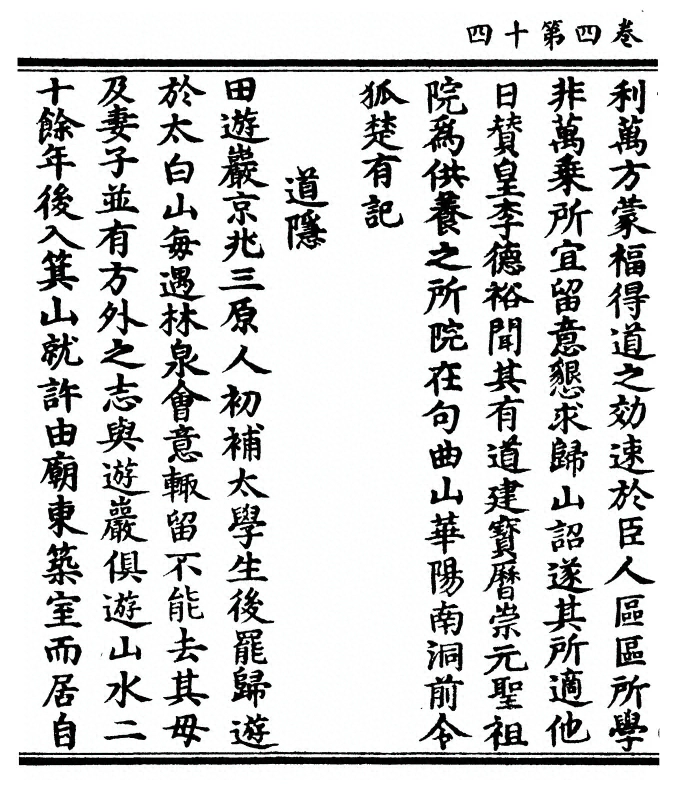 卷四第十四
利萬方蒙福得道之効速於臣人區區所學
非萬乘所宜留意懇求歸山詔遂其所適他
日贊皇李德裕聞其有道建寶曆崇元聖祖
院爲供養之所院在句曲山華陽南洞前令
狐楚有記
道隱
田遊巖京兆三原人初補太學生後罷歸遊
於太白山每遇林泉會意輙留不能去其母
及妻子並有方外之志與遊巖俱遊山水二
十餘年後入箕山就許由廟東築室而居自